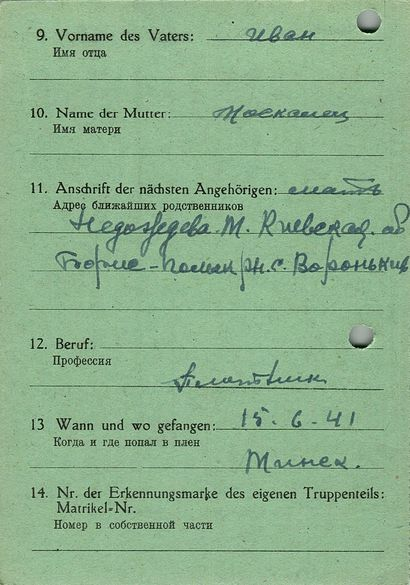 9. Vorname des Vaters: Иван
Имя отца
10. Name der Mutter: Москалец
Имя матери
11. Anschrift der nächsten Angehörigen: мать
Адрес ближайших родственников
М. Киевская об
р-н. с. Вороньків
12. Beruf:
Профессия
Плотник
13 Wann und wo gefangen: 15-6-41
Когда и где попал в плен
Минск.
14. Nr. der Erkennungsmarke des eigenen Truppenteils:
Matrikel=Nr.
Номер в собственной части